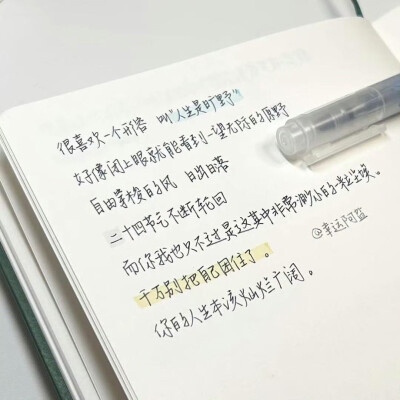 很喜欢一个形容 叫"人生是旷野"
好像闭上眼就能看到一望无际的原野
自由摩挲的风 日出日落
二十四节气不断轮回
而你我也只不过是这其中非常渺小的一粒尘埃。
千万别把自己困住了。
你的人生本该灿烂广阔。
@幸运阿蓝